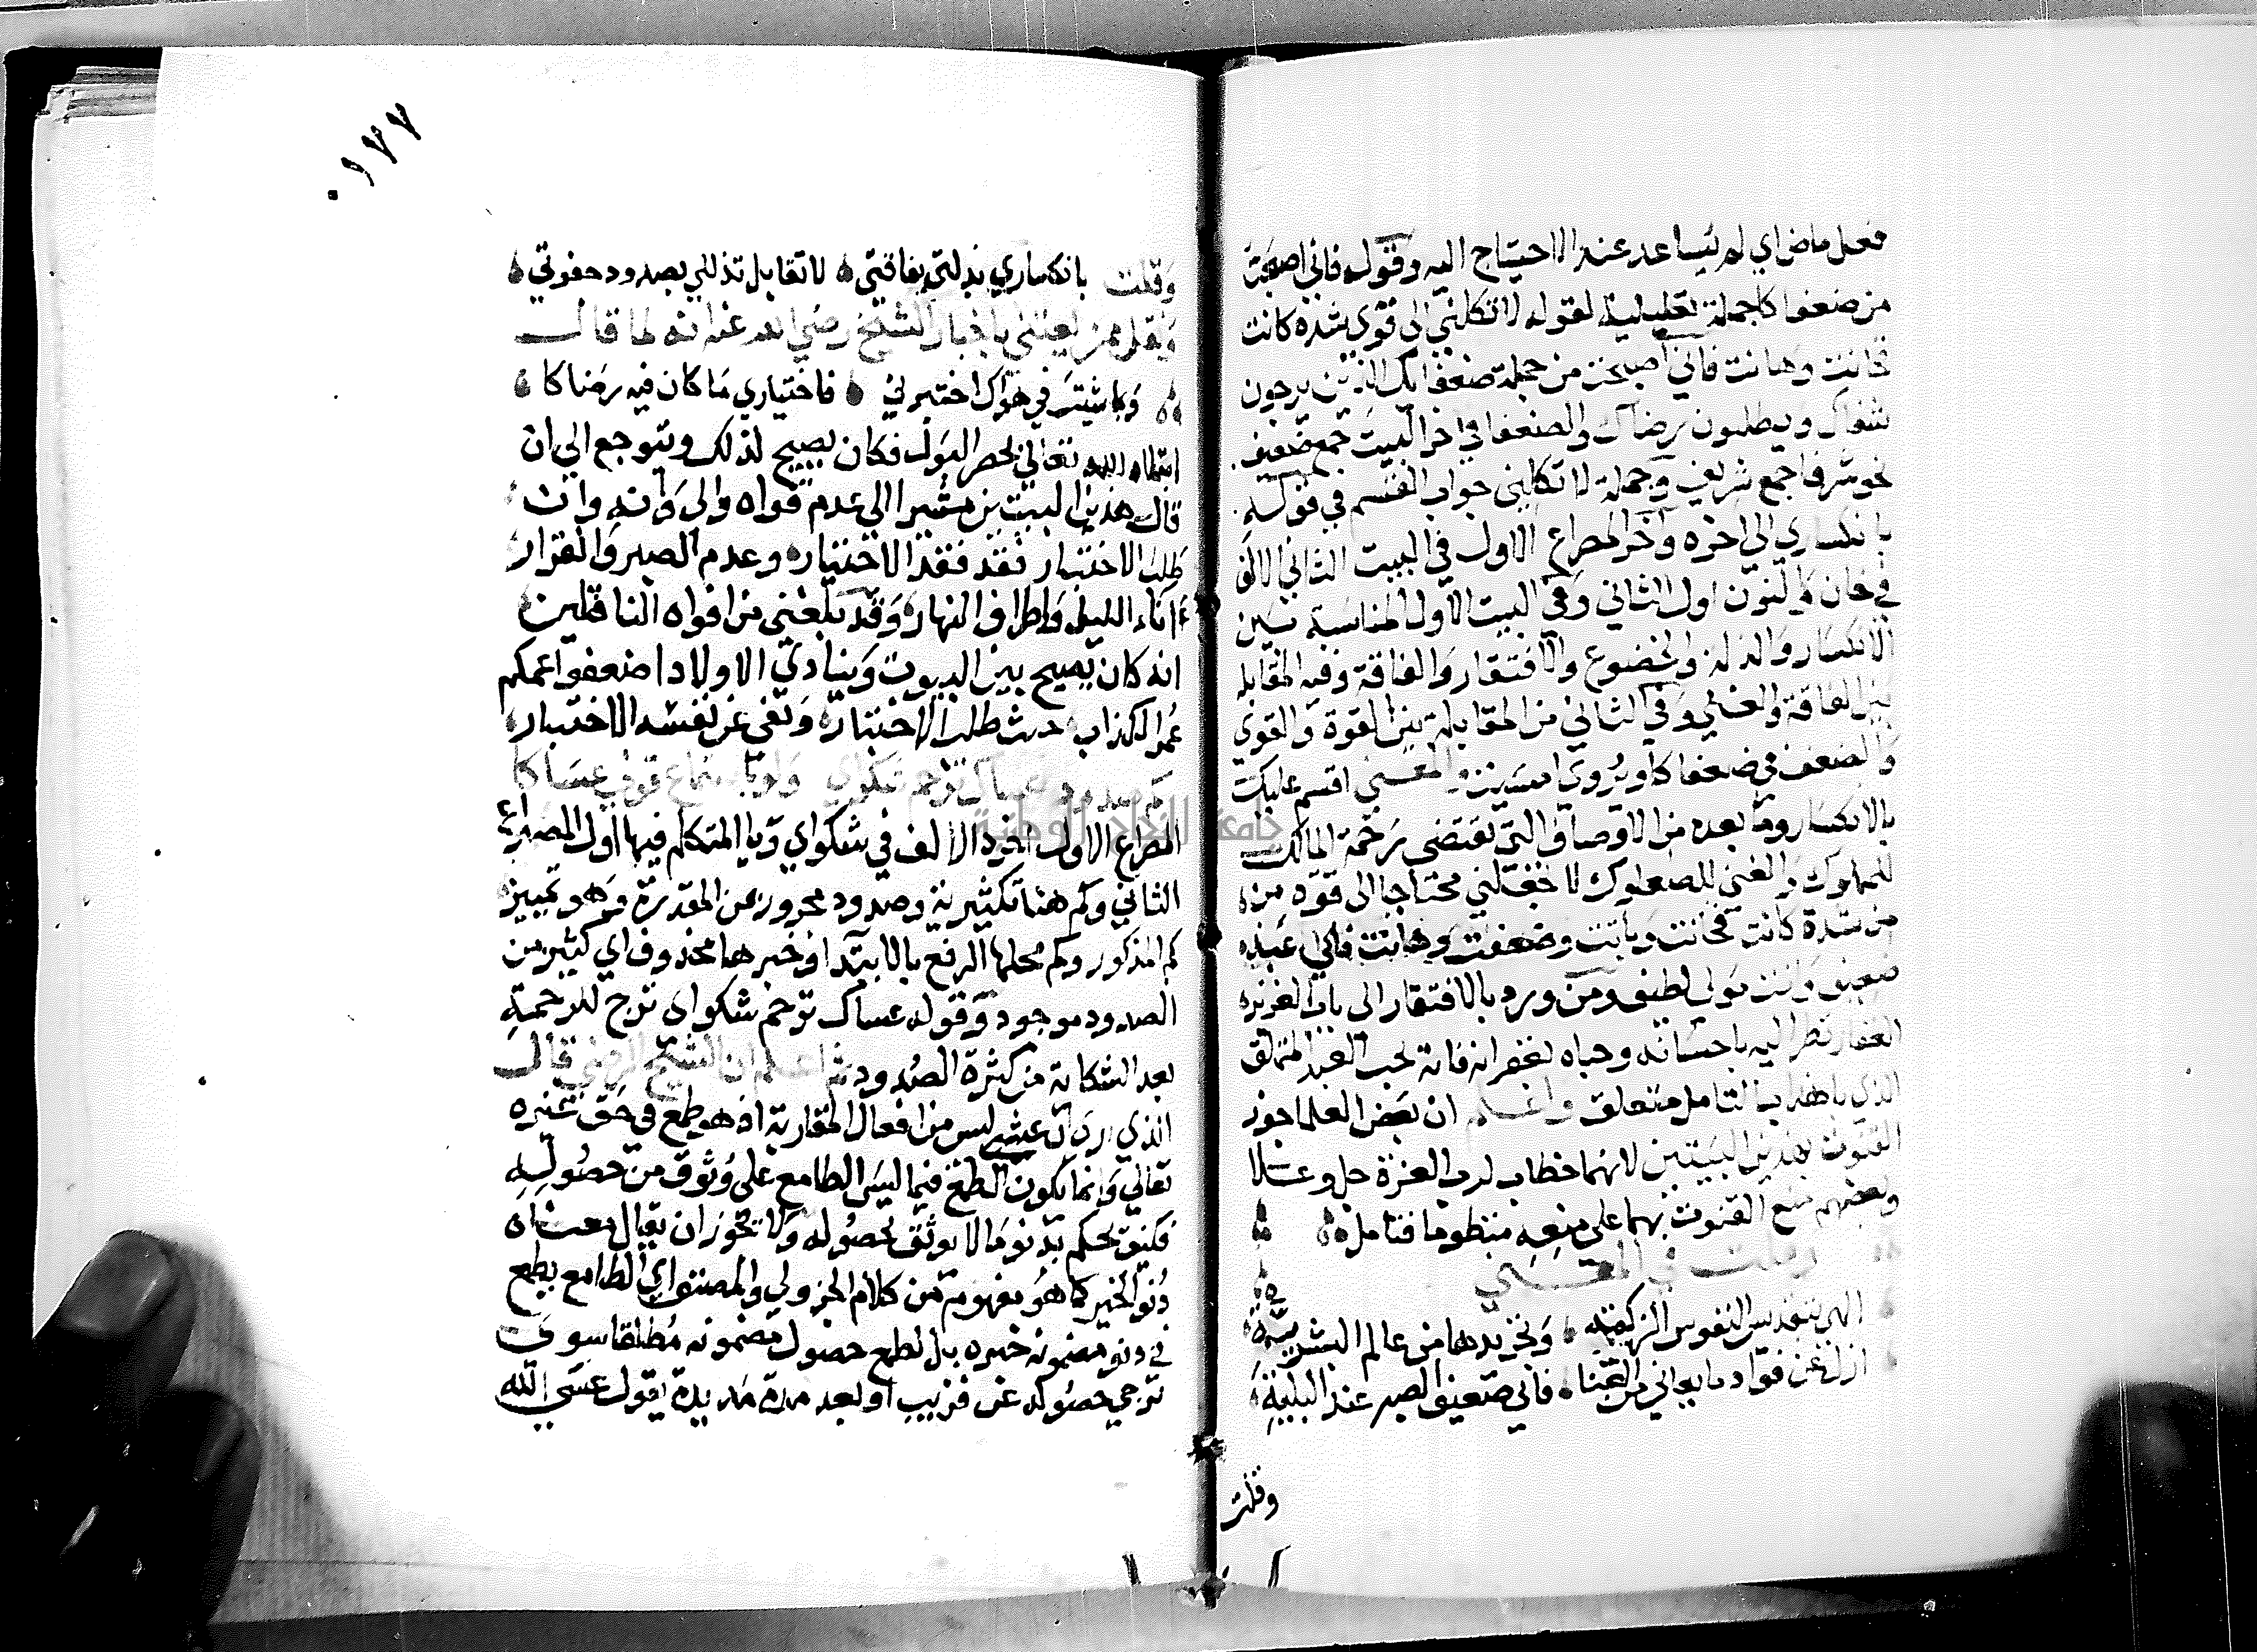 فعل ماض اي لم يساعد عند الاحتياج اليه وقوله فاني اصبحت
من ضعفاكا جملة تعليلية لقوله لا تكلني الى قوى شده كانت
نخانت وهانت فاني اصبحت من جملة ضعفايك الذين يرجون
شفاك ويطلبون رضاك والضعفا في اخر البيت جمع ضعيف
نحو شرفا جمع شريف وجملة لا تكلني جواب القسم في قوله
بانكساري الى اخره وآخر المصراع الاول في البيت الثاني الالف
في خان والنون اول الثاني وفي البيت الاول المناسبة بين
الانكسار والذلة والخضوع والافتقار والفاقة وفيه المقابلة
بين الفاقة والغنى وفي الثاني من المقابلة بين القوة والقوى
والضعف في ضعفاكا ويروى امسيت والمعنى اقسم عليك
بالانكسار وما بعده من الاوصاف التي تقتضي رحمة المالك
للمملوك والغني للصعلوك لا تجعلني محتاجا الى قوة مني
من شدة كانت فخانت وبانت وضعفت وهانت فاني عبد
ضعيف وانت مولى لطيف ومن ورد بالافتقار الى باب العزيز
الغفار نظر اليه باحسانه وحباه بغفرانه فانه يحب العبد المتملق
الذي باهداب التامل متعلق واعلم ان بعض العلما جوز
القنوت بهذين البيتين لانهما خطاب لرب العزة جل وعلا
وبعضهم منع القنوت بهما على منعه منظوما فتامل
وقلت في المعنى
الهي بتقديس النفوس الزكية وتجريدها من عالم البشرية
ازل عن فؤادي ما يعاني من العنا فاني ضعيف الصبر عند البلية
وقلت
٠١٧٧
وقلت بانكساري بذلتي بفاقتي لا تقابل تذللي بصدود جفوتي
ونقل من يعتني باخبار الشيخ رضي الله عنه انه لما قال
وبما شئت في هواك اختبرني فاختياري ما كان فيه رضاكا
ابتلاه الله تعالى بحصر البول فكان يصيح لذلك ويتوجع الى ان
قال هذين البيتين مشيرا الى عدم قواه والى وانه وان
طلب الاختبار فقد فقد الاختيار وعدم الصبر والقرار
اناء الليل واطراف النهار وقد بلغني من افواه الناقلين
انه كان يصيح بين البيوت وينادي الاولاد اصفعوا عمكم
عمر الكذاب حيث طلب الاختبار ونفى عن نفسه الاختيار
كم صدود عساك ترحم شكواي ولو باستماع قولي عساكا
المصراع الاول اخره الالف في شكواي ويا المتكلم فيها اول المصراع
الثاني وكم هنا تكثيرية وصدود مجرور بمن المقدرة وهو تمييز
كم المذكور وكم محلها الرفع بالابتدا وخبرها محذوف اي كثير من
الصدود موجود وقوله عساك ترحم شكواي ترج للرحمة
بعد الشكاية من كثرة الصدود ثم اعلم ان الشيخ الرضي قال
الذي ارى ان عسى ليس من افعال المقاربة اذ هو طمع في حق غيره
تعالى وانما يكون الطمع فيما ليس الطامع على وثوق من حصوله
فكيف يحكم بدنو ما لا يوثق بحصوله ولا يجوز ان يقال معناه
دنو الخبر كما هو مفهوم من كلام الجزولي والمصنف اي الطامع يطمع
في دنو مضمون خبره بل لطمع حصول مضمونه مطلقا سوى
ترجي حصوله عن قريب او بعد مدة مديدة يقول عسى الله